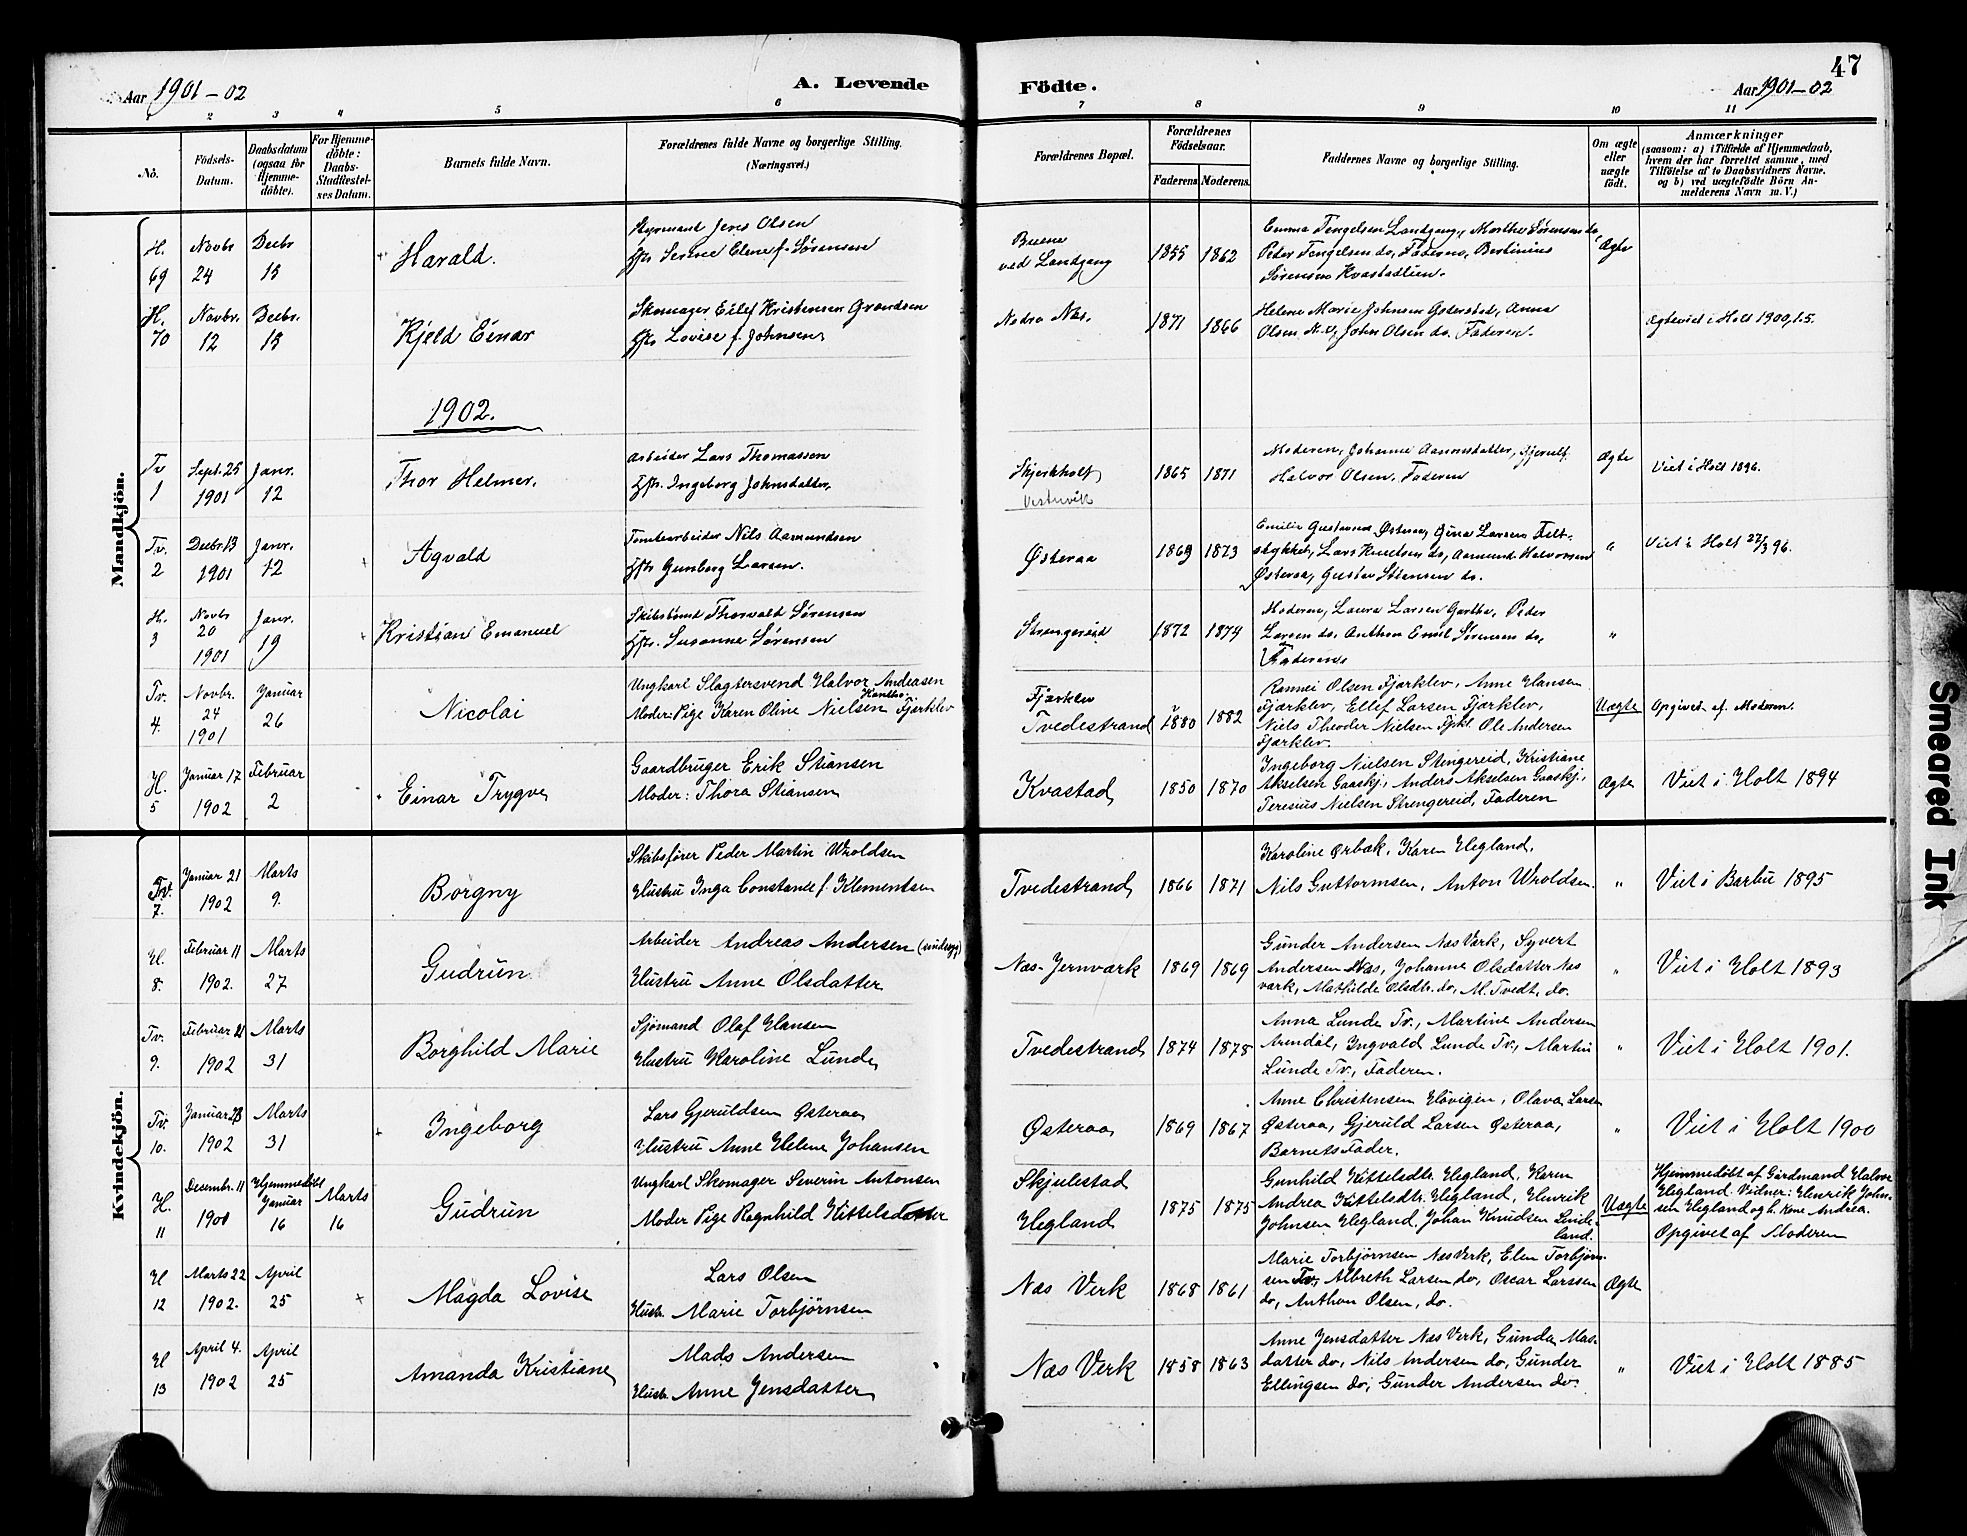 Aar 1901-02
A. Levende Födte.
47
Aar 1901-02
1 2 3 4 5 6 7 8 9 10 11
No.
Födsels-
Datum.
Daabsdatum
(ogsaa for
Hjemme-
döbte).
For Hjemme-
döbte:
Daabs-
Stadfæstel-
ses Datum.
Barnets fulde Navn.
Forældrenes fulde Navne og borgerlige Stilling.
(Næringsvei.)
Forældrenes Bopæl.
Forældrenes
Födselsaar.
Faderens. Moderens.
Faddernes Navne og borgerlige Stilling.
Om ægte
eller
uægte
födt.
Anmærkninger
(saasom: a) i Tilfælde af Hjemmedaab,
hvem der har forrettet samme, med
Tilföielse af to Daabsvidners Navne,
og b) ved uægtefödte Börn An-
melderens Navn m. V.)
Mandkjön.
H.
69
Novbr
24
Decbr
15
Harald.
Styrmand Jens Olsen
Hst. Serine Elene f. Sørensen
Buene
ved Landgang
1855
1862
Emma Tengelsen Landgang, Marthe Sørensen do,
Peder Tengelsen do, Faderen, Bertinius
Sørensen Kvastadlien.
Ægte
H.
70
Novbr.
12
Decbr.
15
Kjeld Einar
Skomager Eilef Kristensen Grændsen
Hst. Lovise f. Johnsen
Nedre Næs.
1871
1866
Helene Marie Johnsen Gsterstad, Anna
Olsen N.V., John Olsen do. Faderen.
Ægteviet i Holt 1900, 1.5.
1902.
Tv
1
Sept. 25
1901
Janr.
12
Thor Helmer.
Arbeider Lars Thomassen
Hst. Ingeborg Johnsdatter,
Skjerkholt
Vestervik
1865
1871
Moderen, Johanne Aanonsdatter,
Halvor Olsen, Faderen
Ægte
Viet i Holt 1896.
Tv.
2
Decbr. 13
1901
Janr.
12
Agvald
Tomtearbeider Nils Aamundsen
Hst. Gunborg Larsen.
Østeraa
1869
1873
Emilie Gustavsen Østeraa, Gina Larsen Felt-
stykket, Lars Knutsen do, Aamund Halvorsen
Østeraa, Gustav Stiansen do.
"
Viet i Holt 27/3 96.
H.
3
Novbr
20
1901
Janr.
19
Kristian Emanuel
Skibstømt Thorvald Sørensen
Hst. Susanne Sørensen
Strengereid
1872
1879
Moderen, Laura Larsen Garthe, Peder
Larsen do, Anthon Emil Sørensen do,
Faderen
"
Tv.
4.
Novbr.
24
1901
Januar
26
Nicolai
Ungkarl Slagtersvend Halvor Andreasen
Moder: Pige Karen Oline Nielsen Fjærklev
Fjærklev
Tvedestrand
1880
1882
Rannei Olsen Fjærklev, Anne Hansen
Fjærklev, Ellef Larsen Fjærklev,
Niels Theodor Nielsen Fjkl. Ole Andersen
Fjærklev.
Uægte
Opgivet af Moderen.
H.
5
Januar 17
1902
Februar
2
Einar Trygve
Gaardbruger Erik Stiansen
Moder: Thora Stiansen
Kvastad
1850
1870
Ingeborg Nielsen Stengereid, Kristiane
Akselsen Gaaskj., Anders Akselsen Gaaskj.,
Teresius Nielsen Strengereid, Faderen
Ægte
Viet i Holt 1894
Kvindekjön.
Tv.
7.
Januar 21
1902
Marts
9.
Borgny
Skibsfører Peder Martin Wroldsen
Hustru Inga Constance f. Klementsen
Tvedestrand
1866
1871
Karoline Ørbæk, Karen Hegland,
Nils Guttormsen, Anton Wroldsen.
"
Viet i Barbu 1895
H.
8.
Februar 11
1902.
Marts
27
Gudrun
Arbeider Andreas Andersen (sindssyg)
Hustru Anne Olsdatter
Næs-Jernværk
1869
1869
Gunder Andersen Næs Værk, Syvert
Andersen Næs, Johanne Olsdatter Næs
værk, Mathilde Olsdtr. do, M. Tvedt, do.
"
Viet i Holt 1893
Tv.
9.
Februar 21
1902
Marts
31
Borghild Marie
Sjømand Olaf Hansen
Hustru Karoline Lunde
Tvedestrand
1874
1878
Anna Lunde Tv., Martine Andersen
Arendal, Ingvald Lunde Tv., Martin
Lunde Tv., Faderen.
"
Viet i Holt 1901.
Tv.
10.
Januar 23
1902
Marts
31
Ingeborg
Lars Gjeruldsen Østeraa
Hustru Anne Helene Johansen
Østeraa
1869
1867
Anne Christensen Høvigen, Olava Larsen
Østeraa, Gjeruld Larsen Østeraa,
Barnets Fader.
"
Viet i Holt 1900
H.
11
Desembr. 11
1901
Hjemmedøbt
Januar
16
Marts
16
Gudrun
Ungkarl Skomager Severin Antonsen
Moder Pige Ragnhild Kittelsdatter
Skjulestad
Hegland
1875
1875
Gunhild Kittelsdtr. Hegland, Karen
Andrea Kittelsdtr. Hegland, Henrik
Johnsen Hegland, Johan Knudsen Linde-
land.
Uægte
Hjemmedøbt af Gårdmand Halvor
Hegland. Vidner: Henrik John-
sen Hegland og h. Kone Andrea.
Opgivet af Moderen
H
12
Marts 22
1902.
April
25
Magda Lovise
Lars Olsen
Hustr. Marie Torbjørnsen
Næs Verk
1868
1861
Marie Torbjørnsen Næs Verk, Elen Torbjørn-
sen Tv., Albreth Larsen do, Oscar Larssen
do, Anthon Olsen, do.
Ægte
H
13
April 4.
1902
April
25
Amanda Kristiane
Mads Andersen
Hustr. Anne Jensdatter
Næs Verk
1858
1863
Anne Jensdatter Næs Verk, Gunda Mas-
datter do, Nils Andersen do, Gunder
Ellingsen do, Gunder Andersen do.
"
Viet i Holt 1885
Smeared Ink